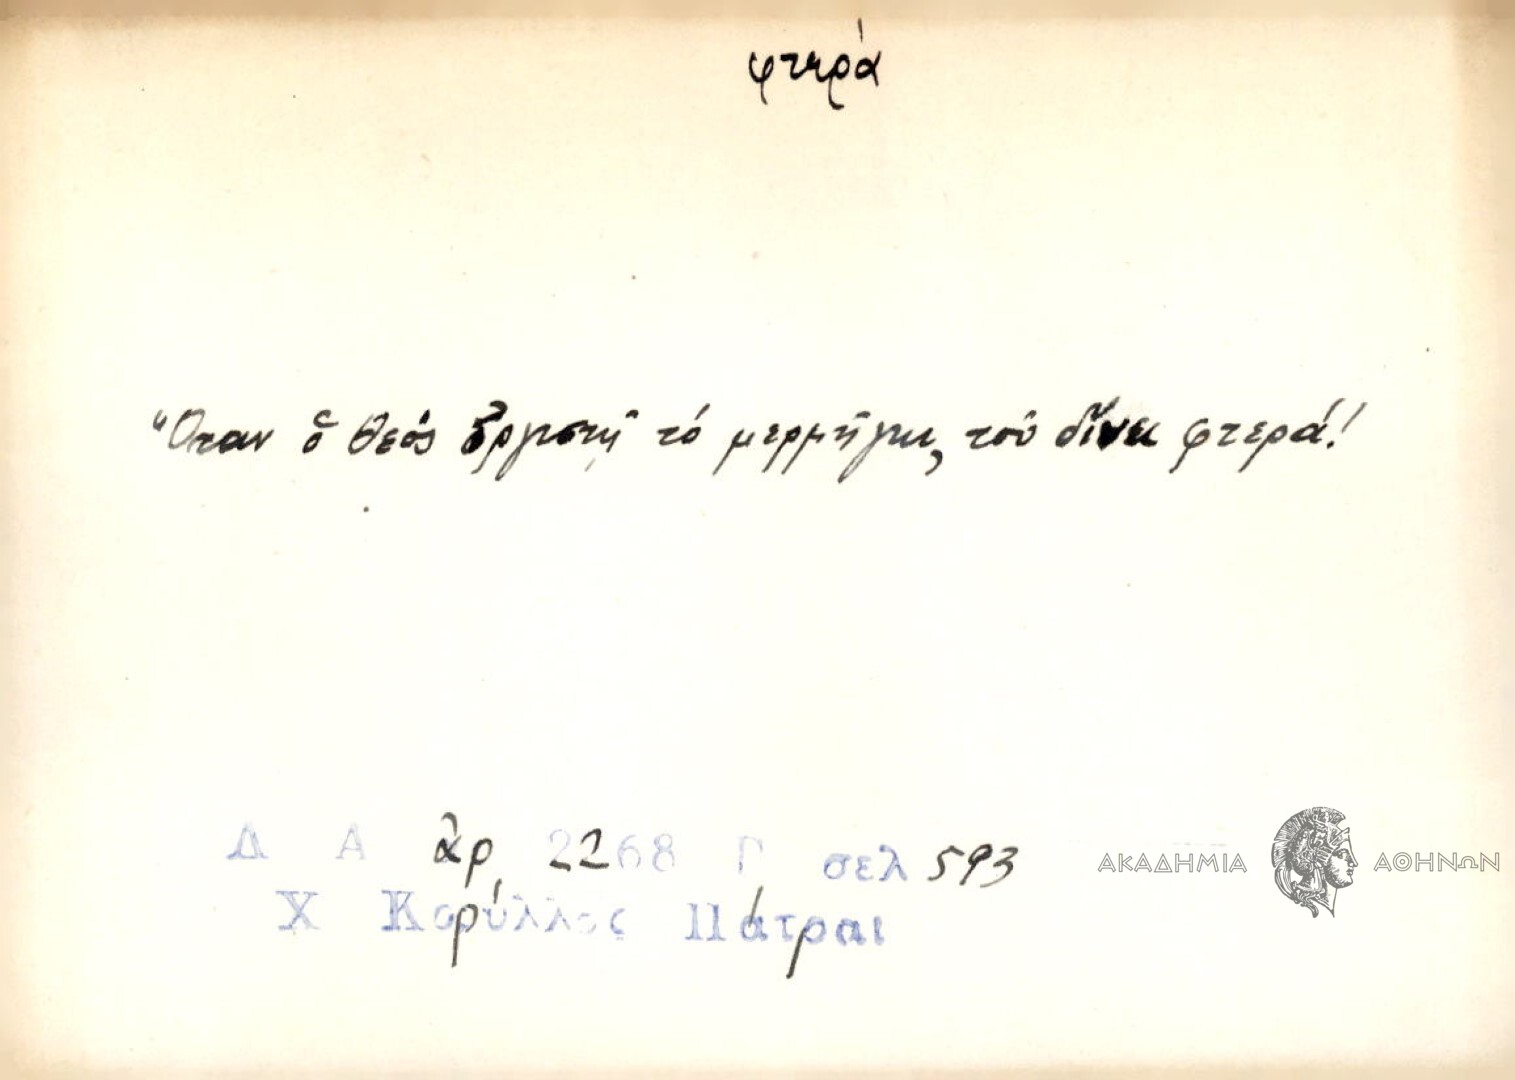 φτερά
Ὅταν ὁ θεός ὀργιστῇ τό μερμῆγκι, τοῦ δίνει φτερά!
Δ Α ἀρ. 2268 Γ σελ 593
Χ Κορύλλος Πάτραι
ΑΚΑΔΗΜΙΑ ΑΘΗΝΩΝ